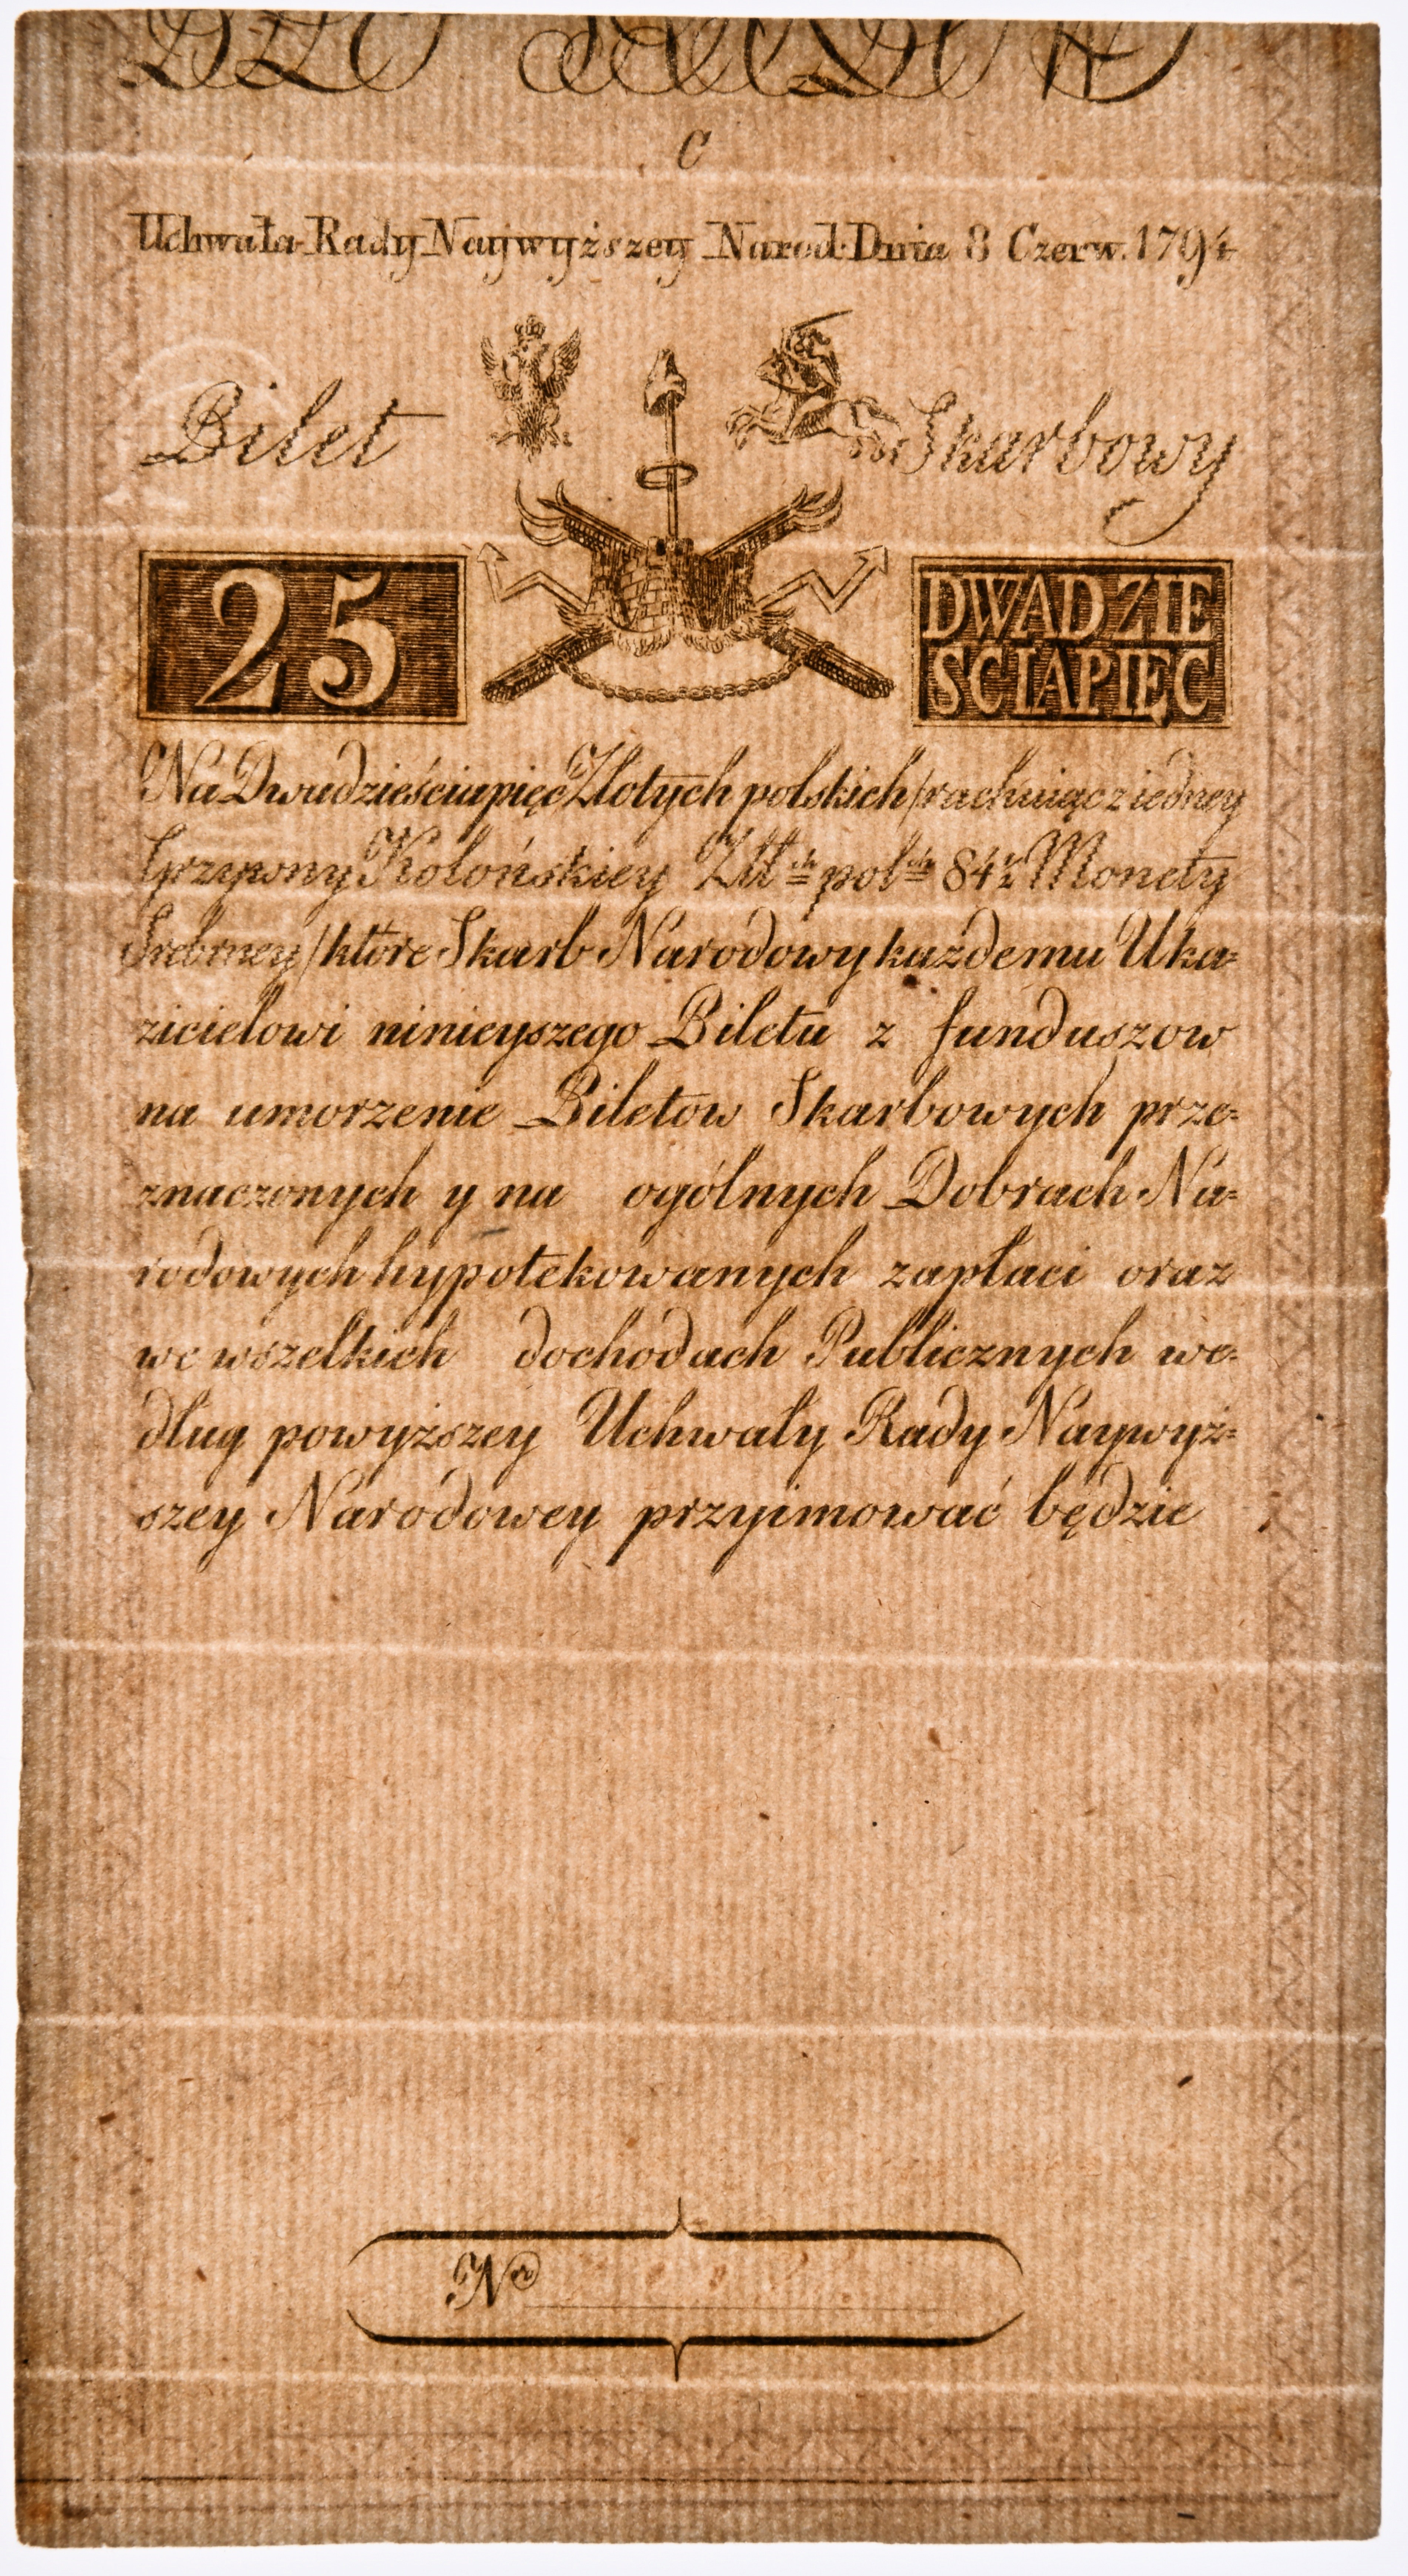 C
Uchwała Rady Naywyższey Narod: Dnia 8 Czerw. 1794
Bilet Skarbowy
25
DWADZIE
SCIAPIĘC
Na Dwudzieściapięć Złotych polskich / rachuiąc z iedney
Grzywny Kolońskiey Złł:ch pol:ch 84½ Monety
Srebrney / które Skarb Narodowy każdemu Uka=
zicielowi ninieyszego Biletu z funduszow
na umorzenie Biletow Skarbowych prze=
znaczonych y na ogólnych Dobrach Na=
rodowych hypotekowanych zapłaci oraz
we wszelkich dochodach Publicznych we=
dług powyższey Uchwały Rady Naywyż=
szey Narodowey przyimować będzie
Nro